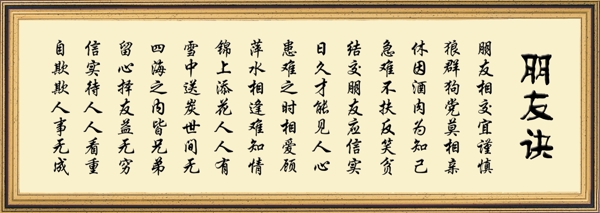 朋友诀
朋友相交宜谨慎
狼群狗党莫相亲
休因酒肉为知己
急难不扶反笑贫
结交朋友应信实
日久才能见人心
患难之时相爱顾
萍水相逢难知情
锦上添花人人有
雪中送炭世间无
四海之内皆兄弟
留心择友益无穷
信实待人人看重
自欺欺人事无成